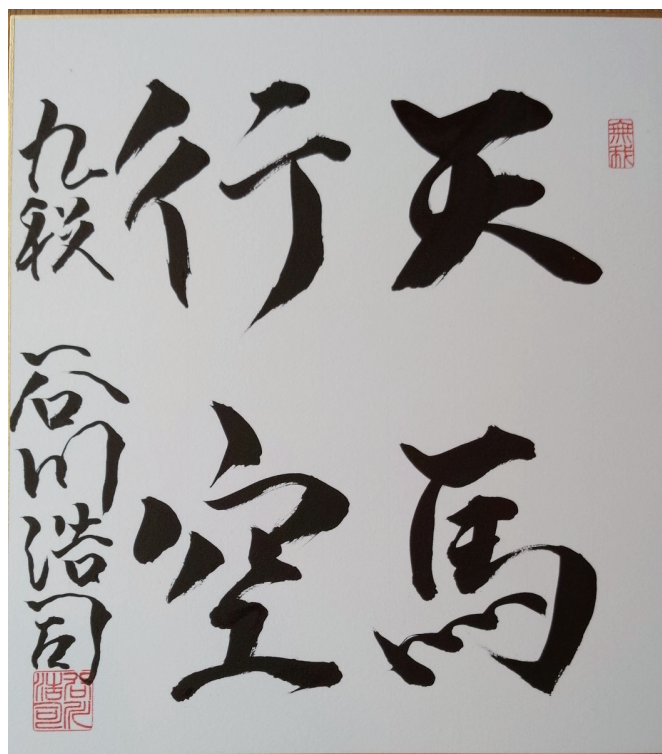 天馬
行空
九段 谷川浩司